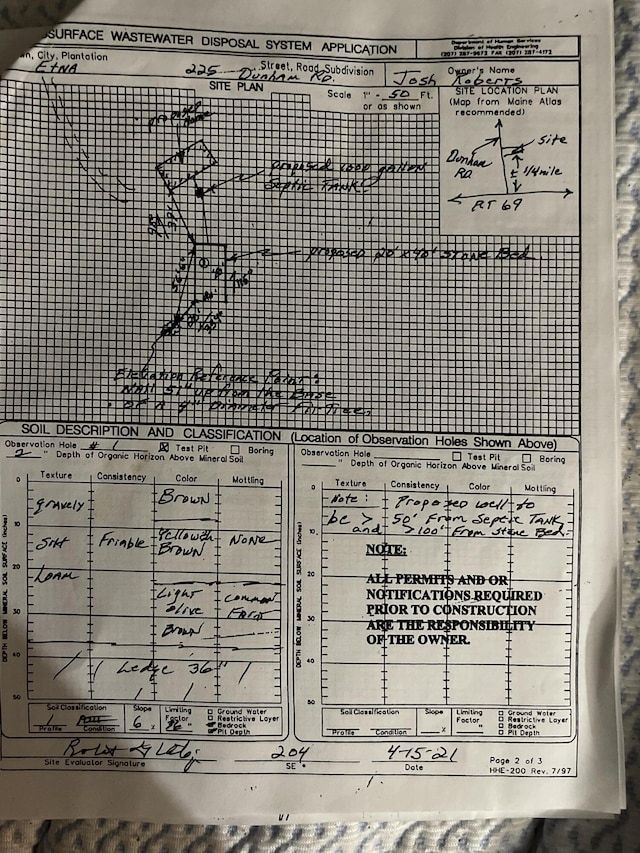 SURFACE WASTEWATER DISPOSAL SYSTEM APPLICATION
Department of Human Services
Division of Health Engineering
(207) 287-5672 FAX (207) 287-4172
n, City, Plantation
Street, Road, Subdivision
Owner's Name
ETNA
225 Dunham RD.
Josh Roberts
SITE PLAN
Scale 1" = 50 Ft.
or as shown
SITE LOCATION PLAN
(Map from Maine Atlas
recommended)
Site
Dunham
RD
± 1/4 mile
RT 69
proposed
Home
proposed 1000 gallon
Septic TANK
proposed 20' x 40' Stone Bed
Elevation Reference Point:
Nail 51" up from the Base
of a 9" Diameter Fir Tree.
SOIL DESCRIPTION AND CLASSIFICATION (Location of Observation Holes Shown Above)
Observation Hole # 1 Test Pit Boring
2 " Depth of Organic Horizon Above Mineral Soil
Texture Consistency Color Mottling
DEPTH BELOW MINERAL SOIL SURFACE (inches)
0
10
20
30
40
50
gravely
Silt
Loam
Friable
Brown
Yellowish
Brown
Light
Olive
Brown
None
Common
Faint
Ledge 36"
Soil Classification
1
Profile Condition
Slope
6 %
Limiting
Factor
36 "
Ground Water
Restrictive Layer
Bedrock
Pit Depth
Observation Hole Test Pit Boring
" Depth of Organic Horizon Above Mineral Soil
Texture Consistency Color Mottling
DEPTH BELOW MINERAL SOIL SURFACE (inches)
0
10
20
30
40
50
Note: Proposed well to
be > 50' From Septic TANK
and > 100' From Stone Bed.
NOTE:
ALL PERMITS AND OR
NOTIFICATIONS REQUIRED
PRIOR TO CONSTRUCTION
ARE THE RESPONSIBILITY
OF THE OWNER.
Soil Classification
Profile Condition
Slope
%
Limiting
Factor
"
Ground Water
Restrictive Layer
Bedrock
Pit Depth
204
4-15-21
Site Evaluator Signature
SE #
Date
Page 2 of 3
HHE-200 Rev. 7/97